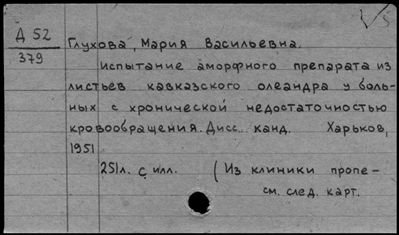 Д 52
379
Глухова, Мария Васильевна.
Испытание аморфного препарата из
листьев кавказского олеандра у боль-
ных с хронической недостаточностью
кровообращения. Дисс. канд. Харьков,
1951
251л. с илл. (Из клиники пропе-
см. след. карт.